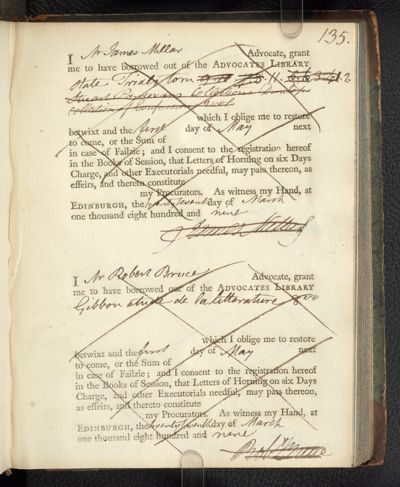 135.
I Mr James Millar Advocate, grant
me to have borrowed out of the ADVOCATES LIBRARY
State Trials tom 11. 2.
Stewart
Collection of Confessions
which I oblige me to restore
betwixt and the first day of May next
to come, or the Sum of
in case of Failzie; and I consent to the registration hereof
in the Books of Session, that Letters of Horning on six Days
Charge, and other Executorials needful, may pass thereon, as
effeirs, and thereto constitute
my Procurators. As witness my Hand, at
EDINBURGH, the twenty seventh day of March
one thousand eight hundred and nine
James Millar
I Mr Robert Bruce Advocate, grant
me to have borrowed out of the ADVOCATES LIBRARY
Gibbon etude de la litterature 8vo
which I oblige me to restore
betwixt and the first day of May next
to come, or the Sum of
in case of Failzie; and I consent to the registration hereof
in the Books of Session, that Letters of Horning on six Days
Charge, and other Executorials needful, may pass thereon,
as effeirs, and thereto constitute
my Procurators. As witness my Hand, at
EDINBURGH, the twenty seventh day of March
one thousand eight hundred and nine
Bruce